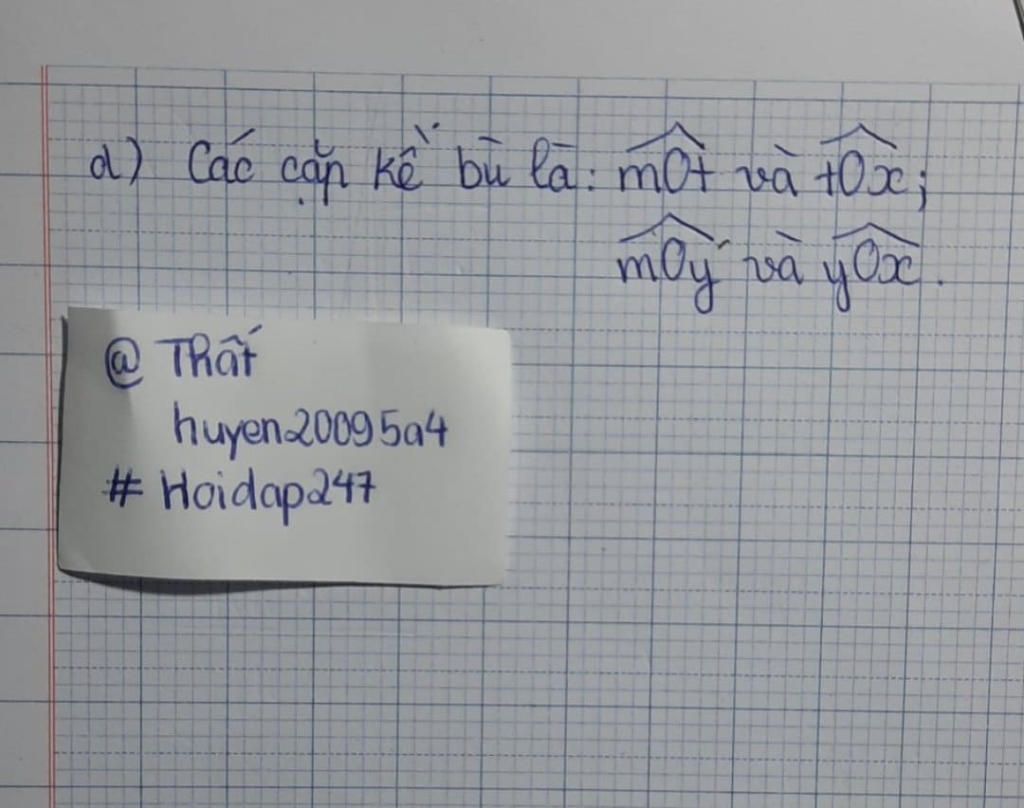 d) Các cặp kề bù là: m̂Ot và t̂Ox;
m̂Oy và ŷOx.
@ Thất
huyen20095a4
# Hoidap247